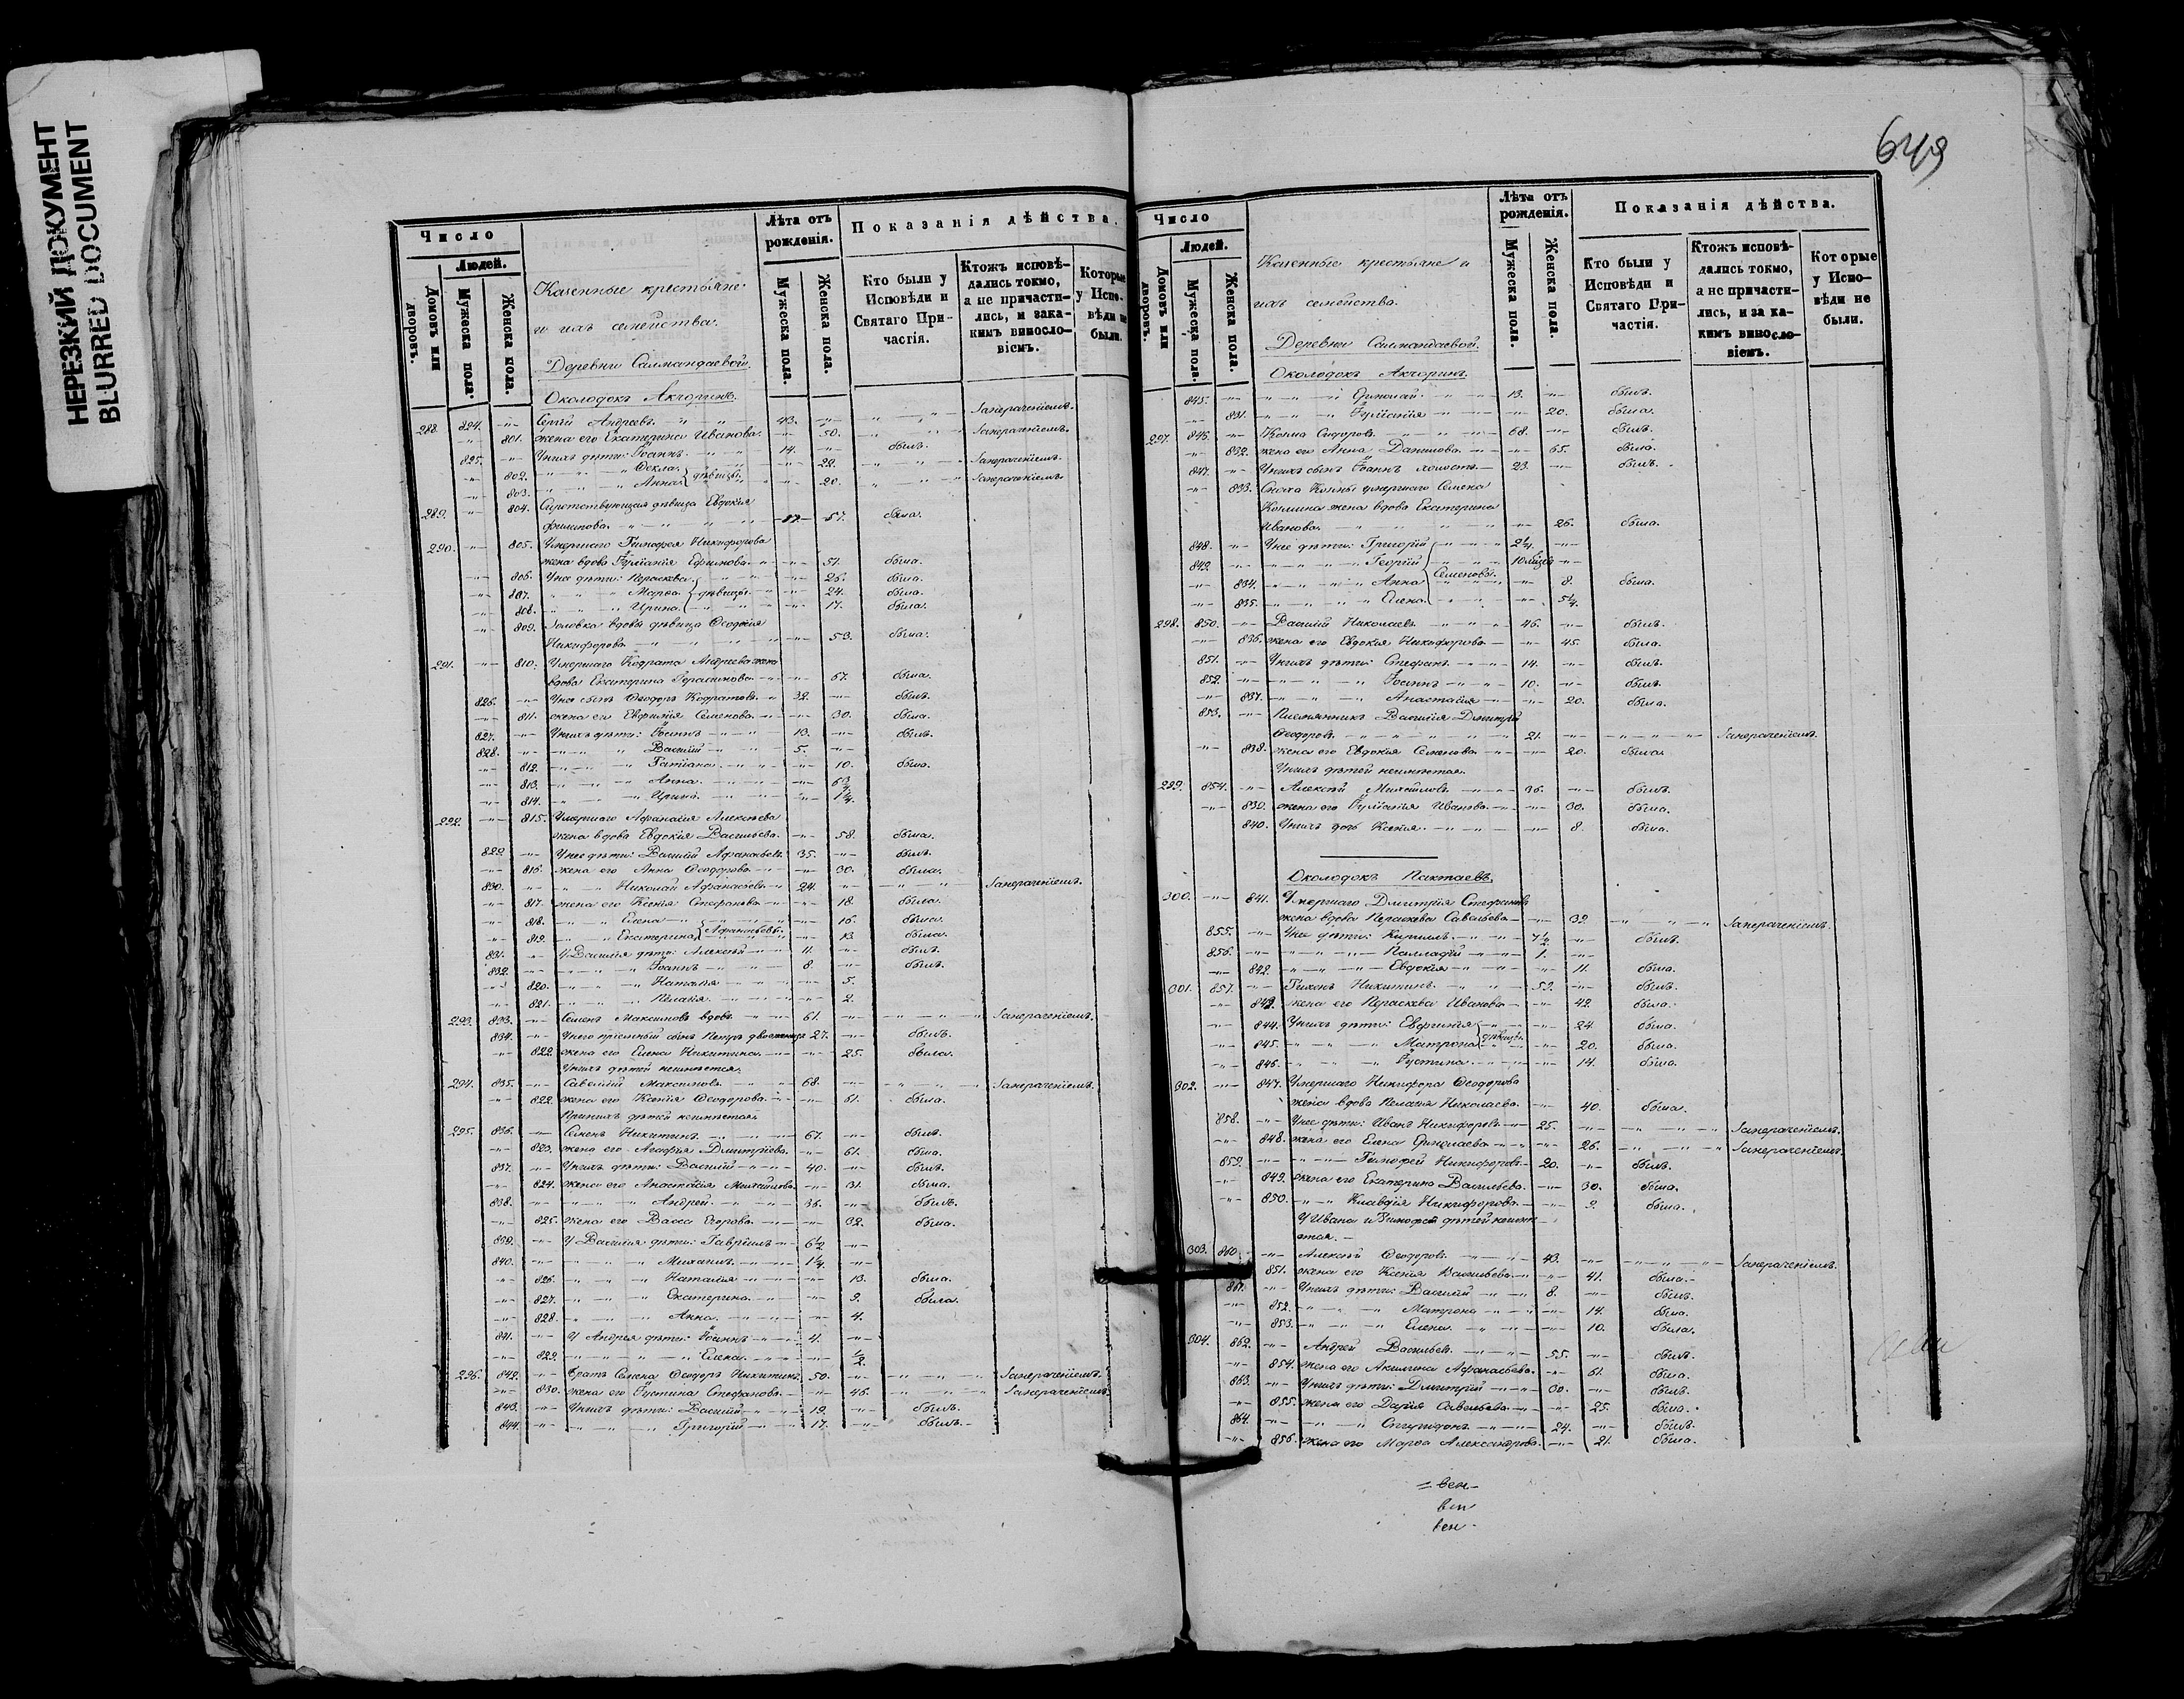 НЕРЕЗКИЙ ДОКУМЕНТ
BLURRED DOCUMENT
Число
Людей.
Домовъ или дворовъ.
Мужеска пола.
Женска пола.
Казенные крестьяне
и ихъ семейства.
Деревни Салмандаевой.
Околодокъ Акчоринъ.
Лѣта отъ рожденія.
Мужеска пола.
Женска пола.
Показанія дѣйства.
Кто были у Исповѣди и Святаго Причастія.
Ктожъ исповѣдались токмо, а не причастились, и закакимъ винословіемъ.
Которые у Исповѣди не были.
288. 824. Сергій Андреевъ 43. Занерачениемъ.
801. жена его Екатерина Иванова. 50. Занерачениемъ.
825. Унихъ дѣти: Іоаннъ 14. былъ.
802. Фекла 22. Занерачениемъ.
803. Анна дѣвицы 20. Занерачениемъ.
289. 804. Сиротствующая дѣвица Евдокія
Филипова. 57. была.
290. 805. Умершаго Тимофея Никифорова
жена вдова Іуліанія Ефимова. 51. была.
806. Унее дѣти: Параскева 26. была.
807. Марфа дѣвицы 24. была.
808. Ирина 17. была.
809. Золовка вдовы дѣвица Феодосія
Никифорова 53. была.
291. 810. Умершаго Кодрата Андреева жена
вдова Екатерина Герасимова. 67. была.
826. Унее сынъ Феодоръ Кодратовъ. 32. былъ.
811. жена его Евфимія Семенова. 30. была.
827. Унихъ дѣти: Іоаннъ 13. былъ.
828. Василій 5.
812. Татіана. 10. была.
813. Анна. 6 3/4
814. Ирина. 1 1/4.
292. 815. Умершаго Афанасія Алексѣева
жена вдова Евдокія Васильева. 58. была.
829. Унее дѣти: Василій Афанасьевъ 35. былъ.
816. жена его Анна Феодорова. 30. была.
830. Николай Афанасьевъ 24. Занерачениемъ.
817. жена его Ксенія Стефанова 18. была.
818. Елена 16. была.
819. Екатерина Афанасьевы. 13. была.
831. У Василія дѣти: Алексѣй 11. былъ.
832. Іоаннъ 8. былъ.
820. Наталія 5.
821. Пелагія. 2.
293. 833. Семенъ Максимовъ вдовъ 61. Занерачениемъ.
834. Унего приемный сынъ Петръ 27. былъ.
822. жена его Елена Никитина. 25. была.
Унихъ дѣтей неимѣется.
294. 835. Савелій Максимовъ 68. Занерачениемъ.
822. жена его Ксенія Феодорова. 61. была.
Принихъ дѣтей неимѣется.
295. 836. Семенъ Никитинъ. 67. былъ.
823. жена его Агафія Дмитріева. 61. была.
837. Унихъ дѣти: Василій 40. былъ.
824. жена его Анастасія Михайлова. 31. была.
838. Андрей. 36. былъ.
825. жена его Васса Егорова. 32. была.
839. У Василія дѣти: Гавріилъ 6 1/2
840. Михаилъ. 1 1/4.
826. Наталія 13. была.
827. Екатерина. 9. была.
828. Анна. 4.
841. У Андрея дѣти: Іоаннъ 4.
829. Елена. 1/2.
296. 842. Братъ Семена Феодоръ Никитинъ. 50. Занерачениемъ.
830. жена его Іустина Стефанова. 46. Занерачениемъ.
843. Унихъ дѣти: Василій 19. былъ.
844. Григорій 17. былъ.
649
Число
Людей.
Домовъ или дворовъ.
Мужеска пола.
Женска пола.
Казенные крестьяне и
ихъ семейства.
Деревни Салмандаевой.
Околодокъ Акчоринъ.
Лѣта отъ рожденія.
Мужеска пола.
Женска пола.
Показанія дѣйства.
Кто были у Исповѣди и Святаго Причастія.
Ктожъ исповѣдались токмо, а не причастились, и за какимъ винословіемъ.
Которые у Исповѣди не были.
845. 13. былъ.
831. Іуліанія 20. была.
297. 846. Козма Сидоровъ. 68. былъ.
832. жена его Анна Данилова. 65. была.
847. Унихъ сынъ Іоаннъ холостъ. 23. былъ.
833. Сноха Козмы умершаго Семена
Козмина жена вдова Екатерина
Иванова. 26. была.
848. Унее дѣти: Григорій 2 1/4.
849. Георгій 10
834. Анна Семеновы. 8. была.
835. Елена. 5 1/4.
298. 850. Василій Николаевъ 46. былъ.
836. жена его Евдокія Никифорова 45. была.
851. Унихъ дѣти: Стефанъ. 14. былъ.
852. Іоаннъ 10. былъ.
837. Анастасія 20. была.
853. Племянникъ Василія Дмитрій
Феодоровъ. 21. Занерачениемъ.
838. жена его Евдокія Семенова 20. была.
Унихъ дѣтей неимѣется.
299. 854. Алексѣй Михайловъ 36. былъ.
839. жена его Іуліанія Иванова. 30. была.
840. Унихъ дочь Ксенія. 8. была.
Околодокъ Пактаевъ.
300. 841. Умершаго Дмитрія Стефанова
жена вдова Параскева Савельева 32. Занерачениемъ.
855. Унее дѣти: Кириллъ. 7 1/2 былъ.
856. Палладій 1.
842. Евдокія 11. была.
301. 857. Тихонъ Никитинъ. 53. былъ.
843. жена его Параскева Иванова 42. была.
844. Унихъ дѣти: Евфимія 24. была.
845. Матрона дѣвицы. 20. была.
846. Іустина. 14. была.
302. 847. Умершаго Никифора Феодорова
жена вдова Пелагія Николаева. 40. была.
858. Унее дѣти: Иванъ Никифоровъ 25. Занерачениемъ.
848. жена его Елена 26. Занерачениемъ.
859. Тимофей Никифоровъ 20. былъ.
849. жена его Екатерина Васильева. 30. была.
850. Клавдія Никифорова. 9. была.
У Ивана и Тимофея дѣтей неимѣ
ется.
303. 860. Алексѣй Феодоровъ. 43. Занерачениемъ.
851. жена его Ксенія Васильева 41. была.
861. Унихъ дѣти: Василій 8. былъ.
852. Матрона 14. была.
853. Елена. 10. была.
304. 862. Андрей Васильевъ. 55. былъ.
854. жена его Акилина Афанасьева. 61. была.
863. Унихъ дѣти: Дмитрій 30. былъ.
855. жена его Дарія Савельева 25. была.
864. Спиридонъ 24. былъ.
856. жена его Марфа Александрова. 21. была.
вен
вен
вен